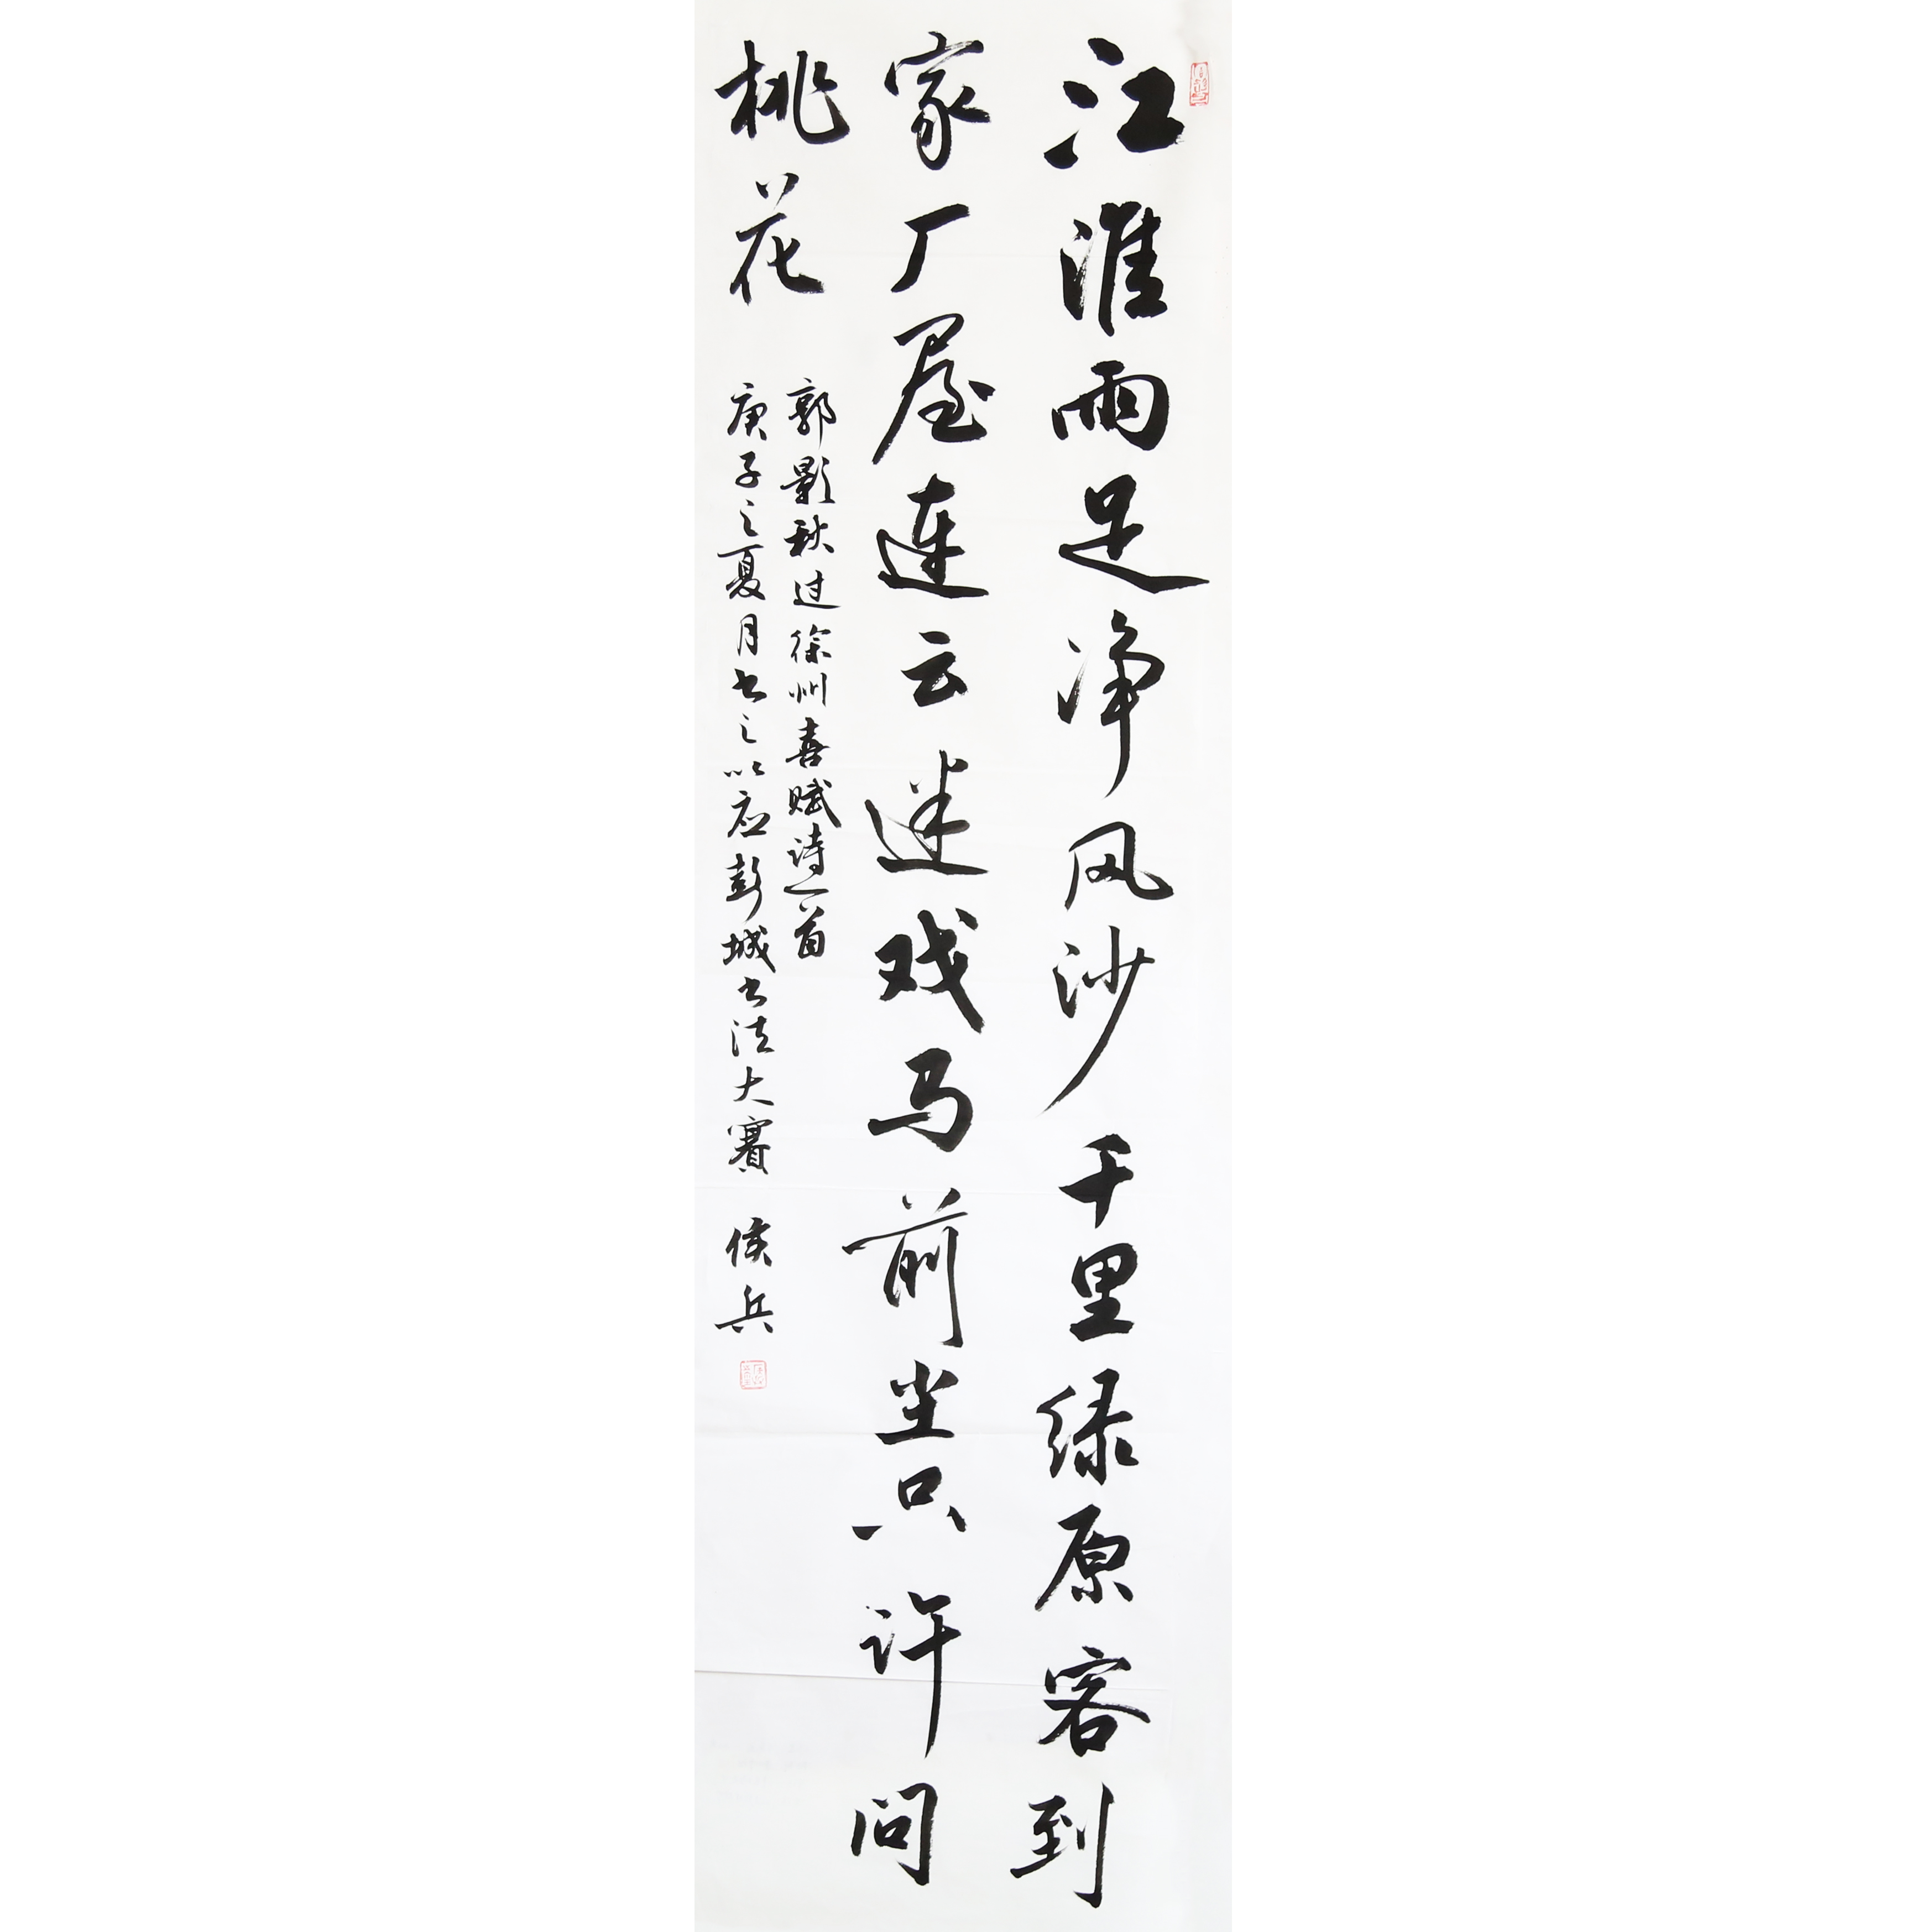 江淮雨足净风沙千里绿原客到
家厂屋连云迷戏马前尘只许问
桃花
郭影秋过徐州喜赋诗一首
庚子之夏月书之以应彭城书法大赛 侯兵